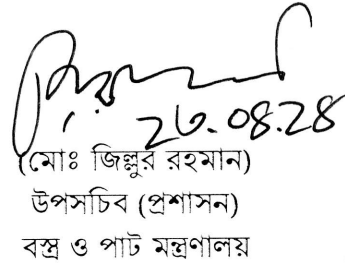 ২৩.০৪.২৪
(মোঃ জিল্লুর রহমান)
উপসচিব (প্রশাসন)
বস্ত্র ও পাট মন্ত্রণালয়